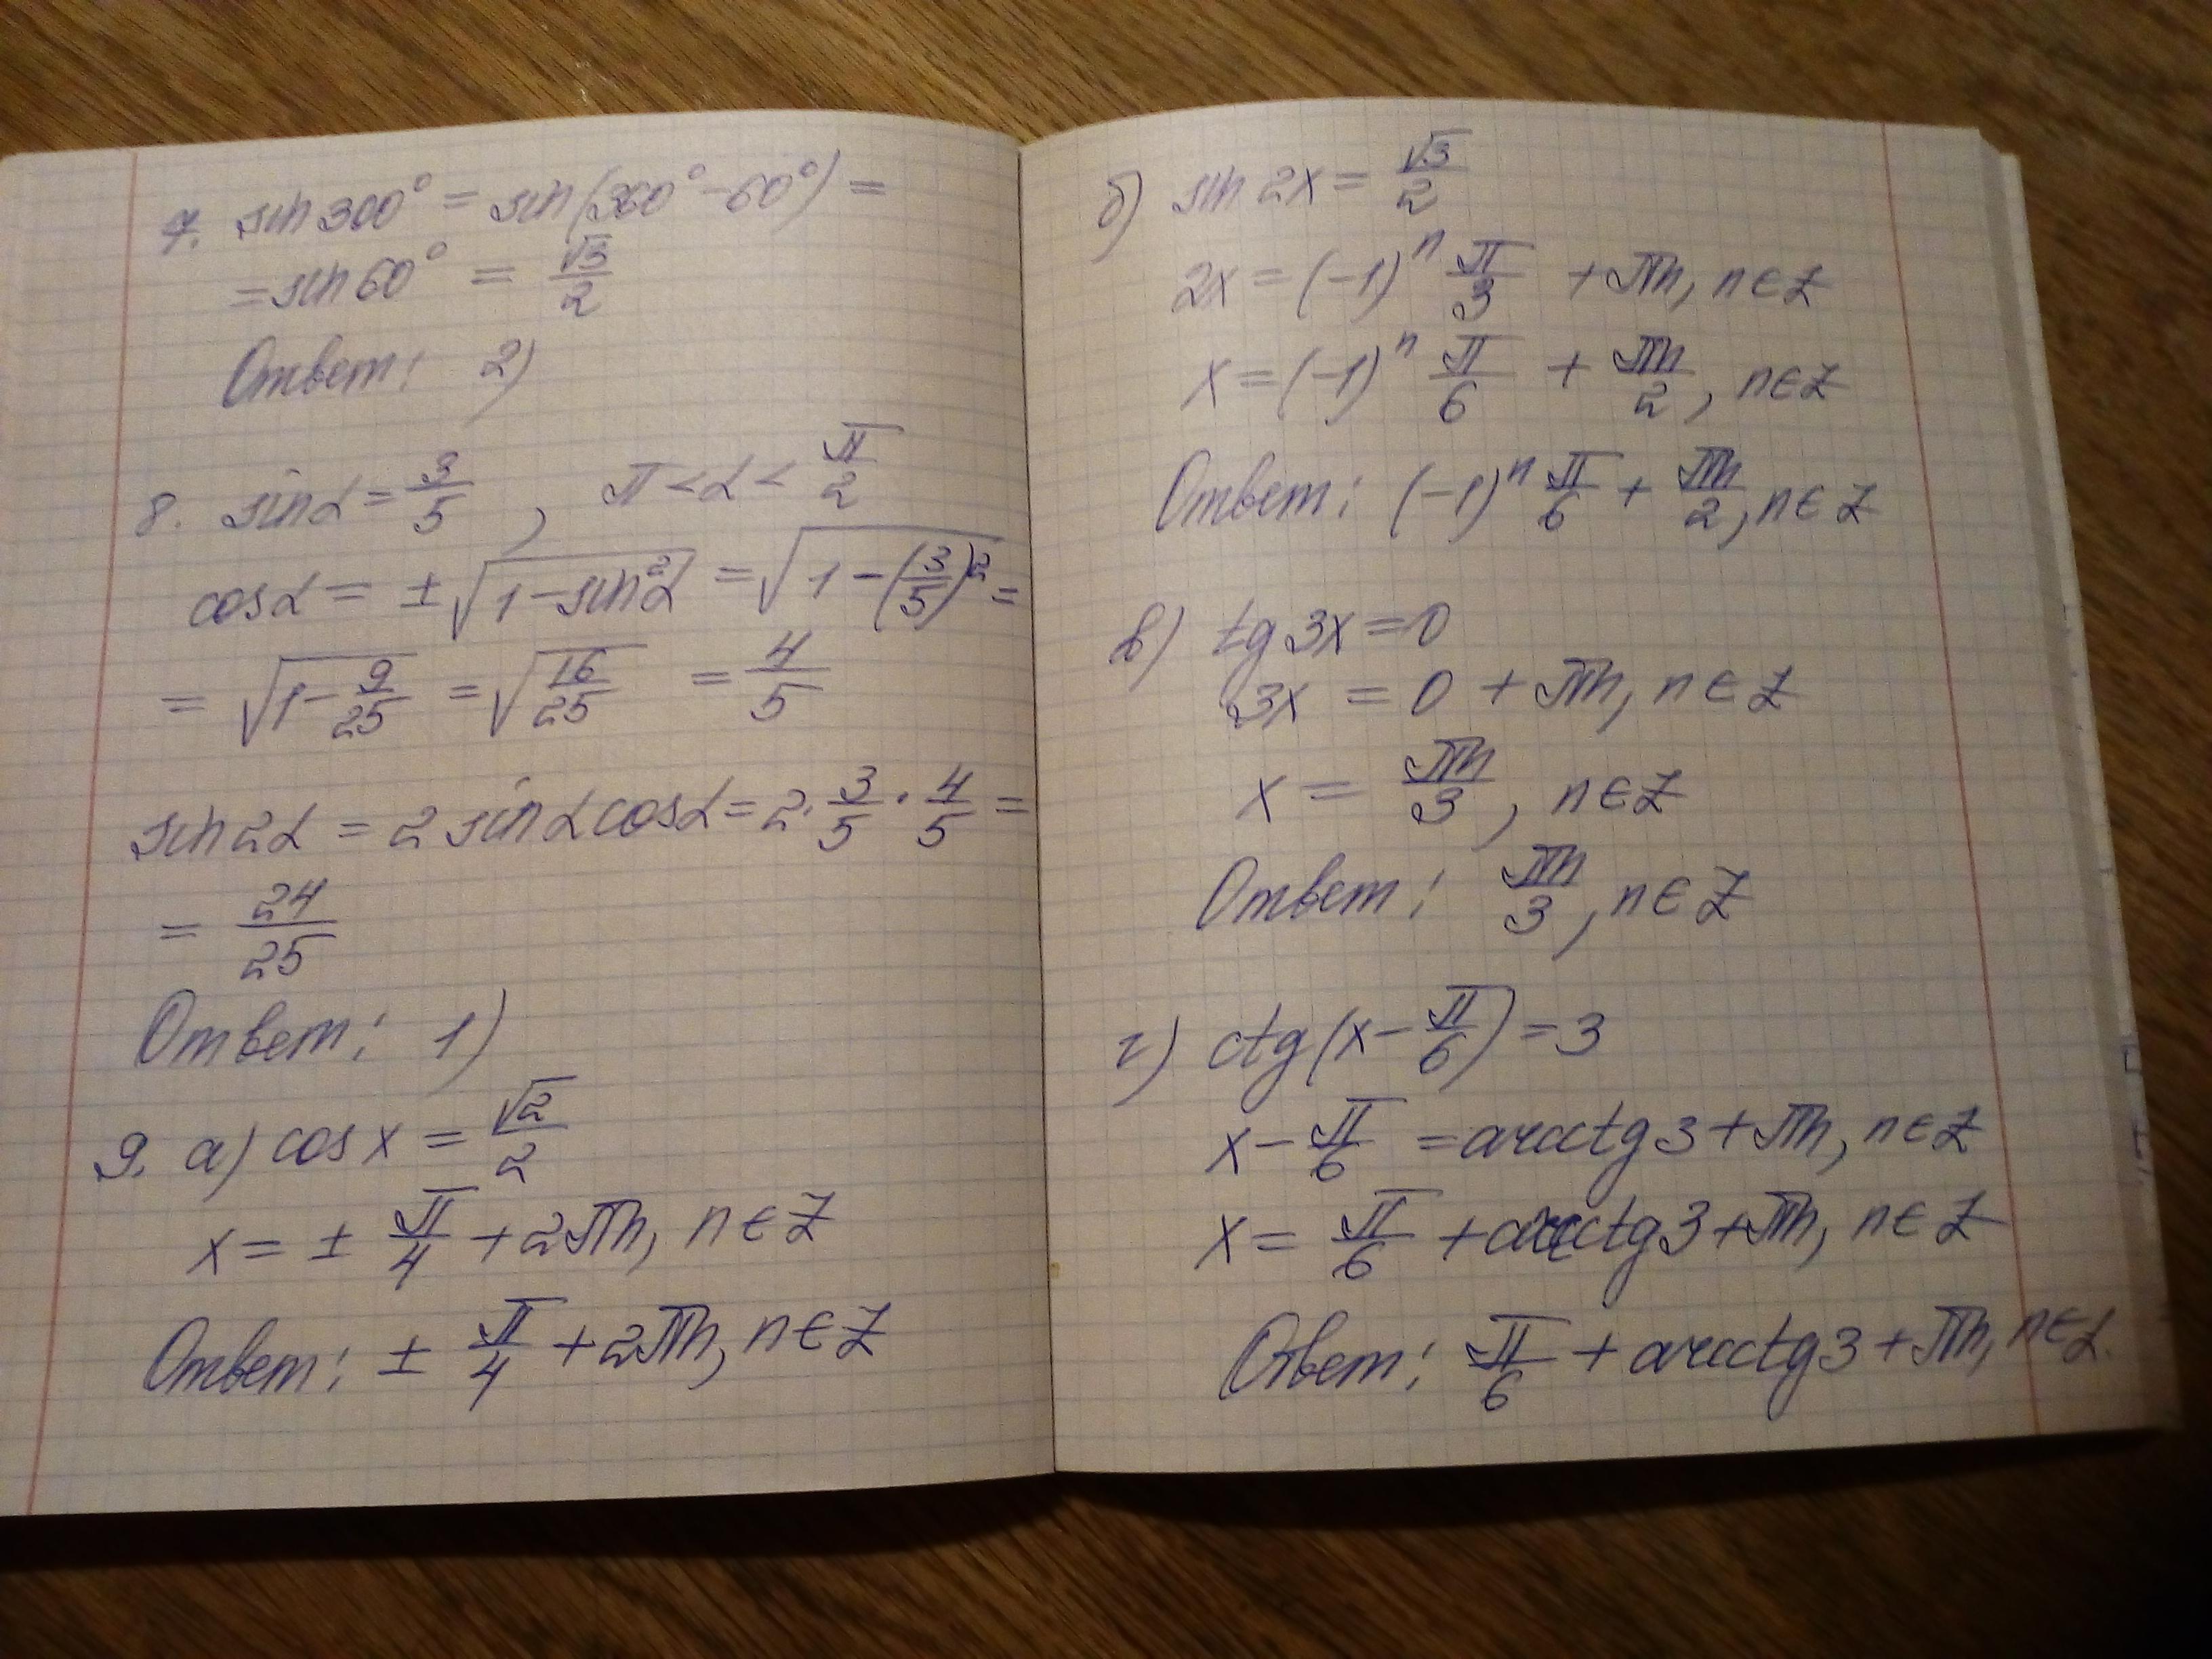 7. sin 300° = sin(360° - 60°) =
= sin 60° = √3/2
Ответ: 2)
8. sin α = 3/5, π < α < π/2
cos α = ± √(1 - sin²α) = √(1 - (3/5)²) =
= √(1 - 9/25) = √(16/25) = 4/5
sin 2α = 2 sin α cos α = 2 · 3/5 · 4/5 =
= 24/25
Ответ: 1)
9. а) cos x = √2/2
x = ± π/4 + 2πn, n ∈ Z
Ответ: ± π/4 + 2πn, n ∈ Z
б) sin 2x = √3/2
2x = (-1)ⁿ π/3 + πn, n ∈ Z
x = (-1)ⁿ π/6 + πn/2, n ∈ Z
Ответ: (-1)ⁿ π/6 + πn/2, n ∈ Z
в) tg 3x = 0
3x = 0 + πn, n ∈ Z
x = πn/3, n ∈ Z
Ответ: πn/3, n ∈ Z
г) ctg(x - π/6) = 3
x - π/6 = arcctg 3 + πn, n ∈ Z
x = π/6 + arcctg 3 + πn, n ∈ Z
Ответ: π/6 + arcctg 3 + πn, n ∈ Z.